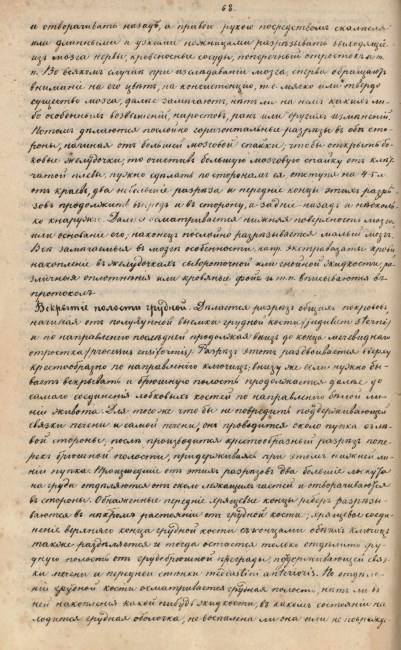 68.
и отворачивать назадъ, а правой рукою посредствомъ скальпеля
или длинными и узкими ножницами разрѣзывать выходящіе
изъ мозга нервы, кровеносные сосуды, поперечный отростокъ и т.
п. Во всякомъ случаѣ при изслѣдованіи мозга, сперва обращаютъ
вниманіе на его цвѣтъ, на консистенцію, т.е. мягко или твердо
существо мозга, далѣе замѣчаютъ, нѣтъ ли на немъ какихъ ли-
бо особенныхъ возвышеній, наростовъ, ранъ или другихъ измѣненій.
Потомъ дѣлаются послойно горизонтальные разрѣзы въ обѣ сто-
роны, начиная отъ большей мозговой спайки, чтобы открыть бо-
ковые желудочки; то очистивъ большую мозговую спайку отъ клѣт-
чатой плевы, нужно сдѣлать по сторонамъ ея отступя на 4-5 л.
отъ краевъ, два небольшіе разрѣза и передніе концы этихъ разрѣ-
зовъ продолжить впередъ и въ сторону, а задніе назадъ и нѣсколь-
ко кнаружи. Далѣе осматривается нижняя поверхность мозга
или основаніе его, наконецъ послойно разрѣзывается малый мозгъ.
Всѣ замѣчаемыя въ мозгѣ особенности, напр. экстравазаты крови,
накопленіе въ желудочкахъ сывороточной или гнойной жидкости, ра-
зличныя оплотнѣнія или кровяные фокусы и т.п. вписываются въ
протоколъ.
Вскрытіе полости грудной. Дѣлается разрѣзъ общихъ покрововъ,
начиная отъ полулунной вырѣзки грудной кости (jugulum sterni)
и по направленію послѣдней продолжая внизъ до конца мечевиднаго
отростка (processus ensiformis). Разрѣзъ этотъ раздвоивается сверху
крестообразно по направленію ключицъ; внизу же если нужно бы-
ваетъ вскрывать и брюшную полость продолжается далѣе до
самаго соединенія лобковыхъ костей по направленію бѣлой ли-
ніи живота. Для того же что бы не повредить поддерживающей
связки печени и самой печени, онъ проводится около пупка съ лѣ-
вой стороны, послѣ производится крестообразный разрѣзъ попе-
рекъ брюшной полости, придерживаясь при этомъ нижней ли-
ніи пупка. Происшедшіе отъ этихъ разрѣзовъ два большіе лоскута
на груди отдѣляются отъ около лежащихъ частей и отворачиваются
въ стороны. Обнаженные передніе хрящевые концы реберъ разрѣзы-
ваются въ нѣкоторомъ разстояніи отъ грудной кости, хрящевое соеди-
неніе верхняго конца грудной кости съ концами обѣихъ ключицъ
также раздѣляется и тогда остается только отдѣлить гру-
дную полость отъ грудобрюшной преграды, поддерживающей связ-
ки печени и передней стѣнки mediastini anterioris. По отдѣле-
ніи грудной кости осматривается грудная полость, нѣтъ ли въ
ней накопленія какой нибудь жидкости, въ какомъ состояніи на-
ходится грудная оболочка, не воспалена ли она или не поврежде-